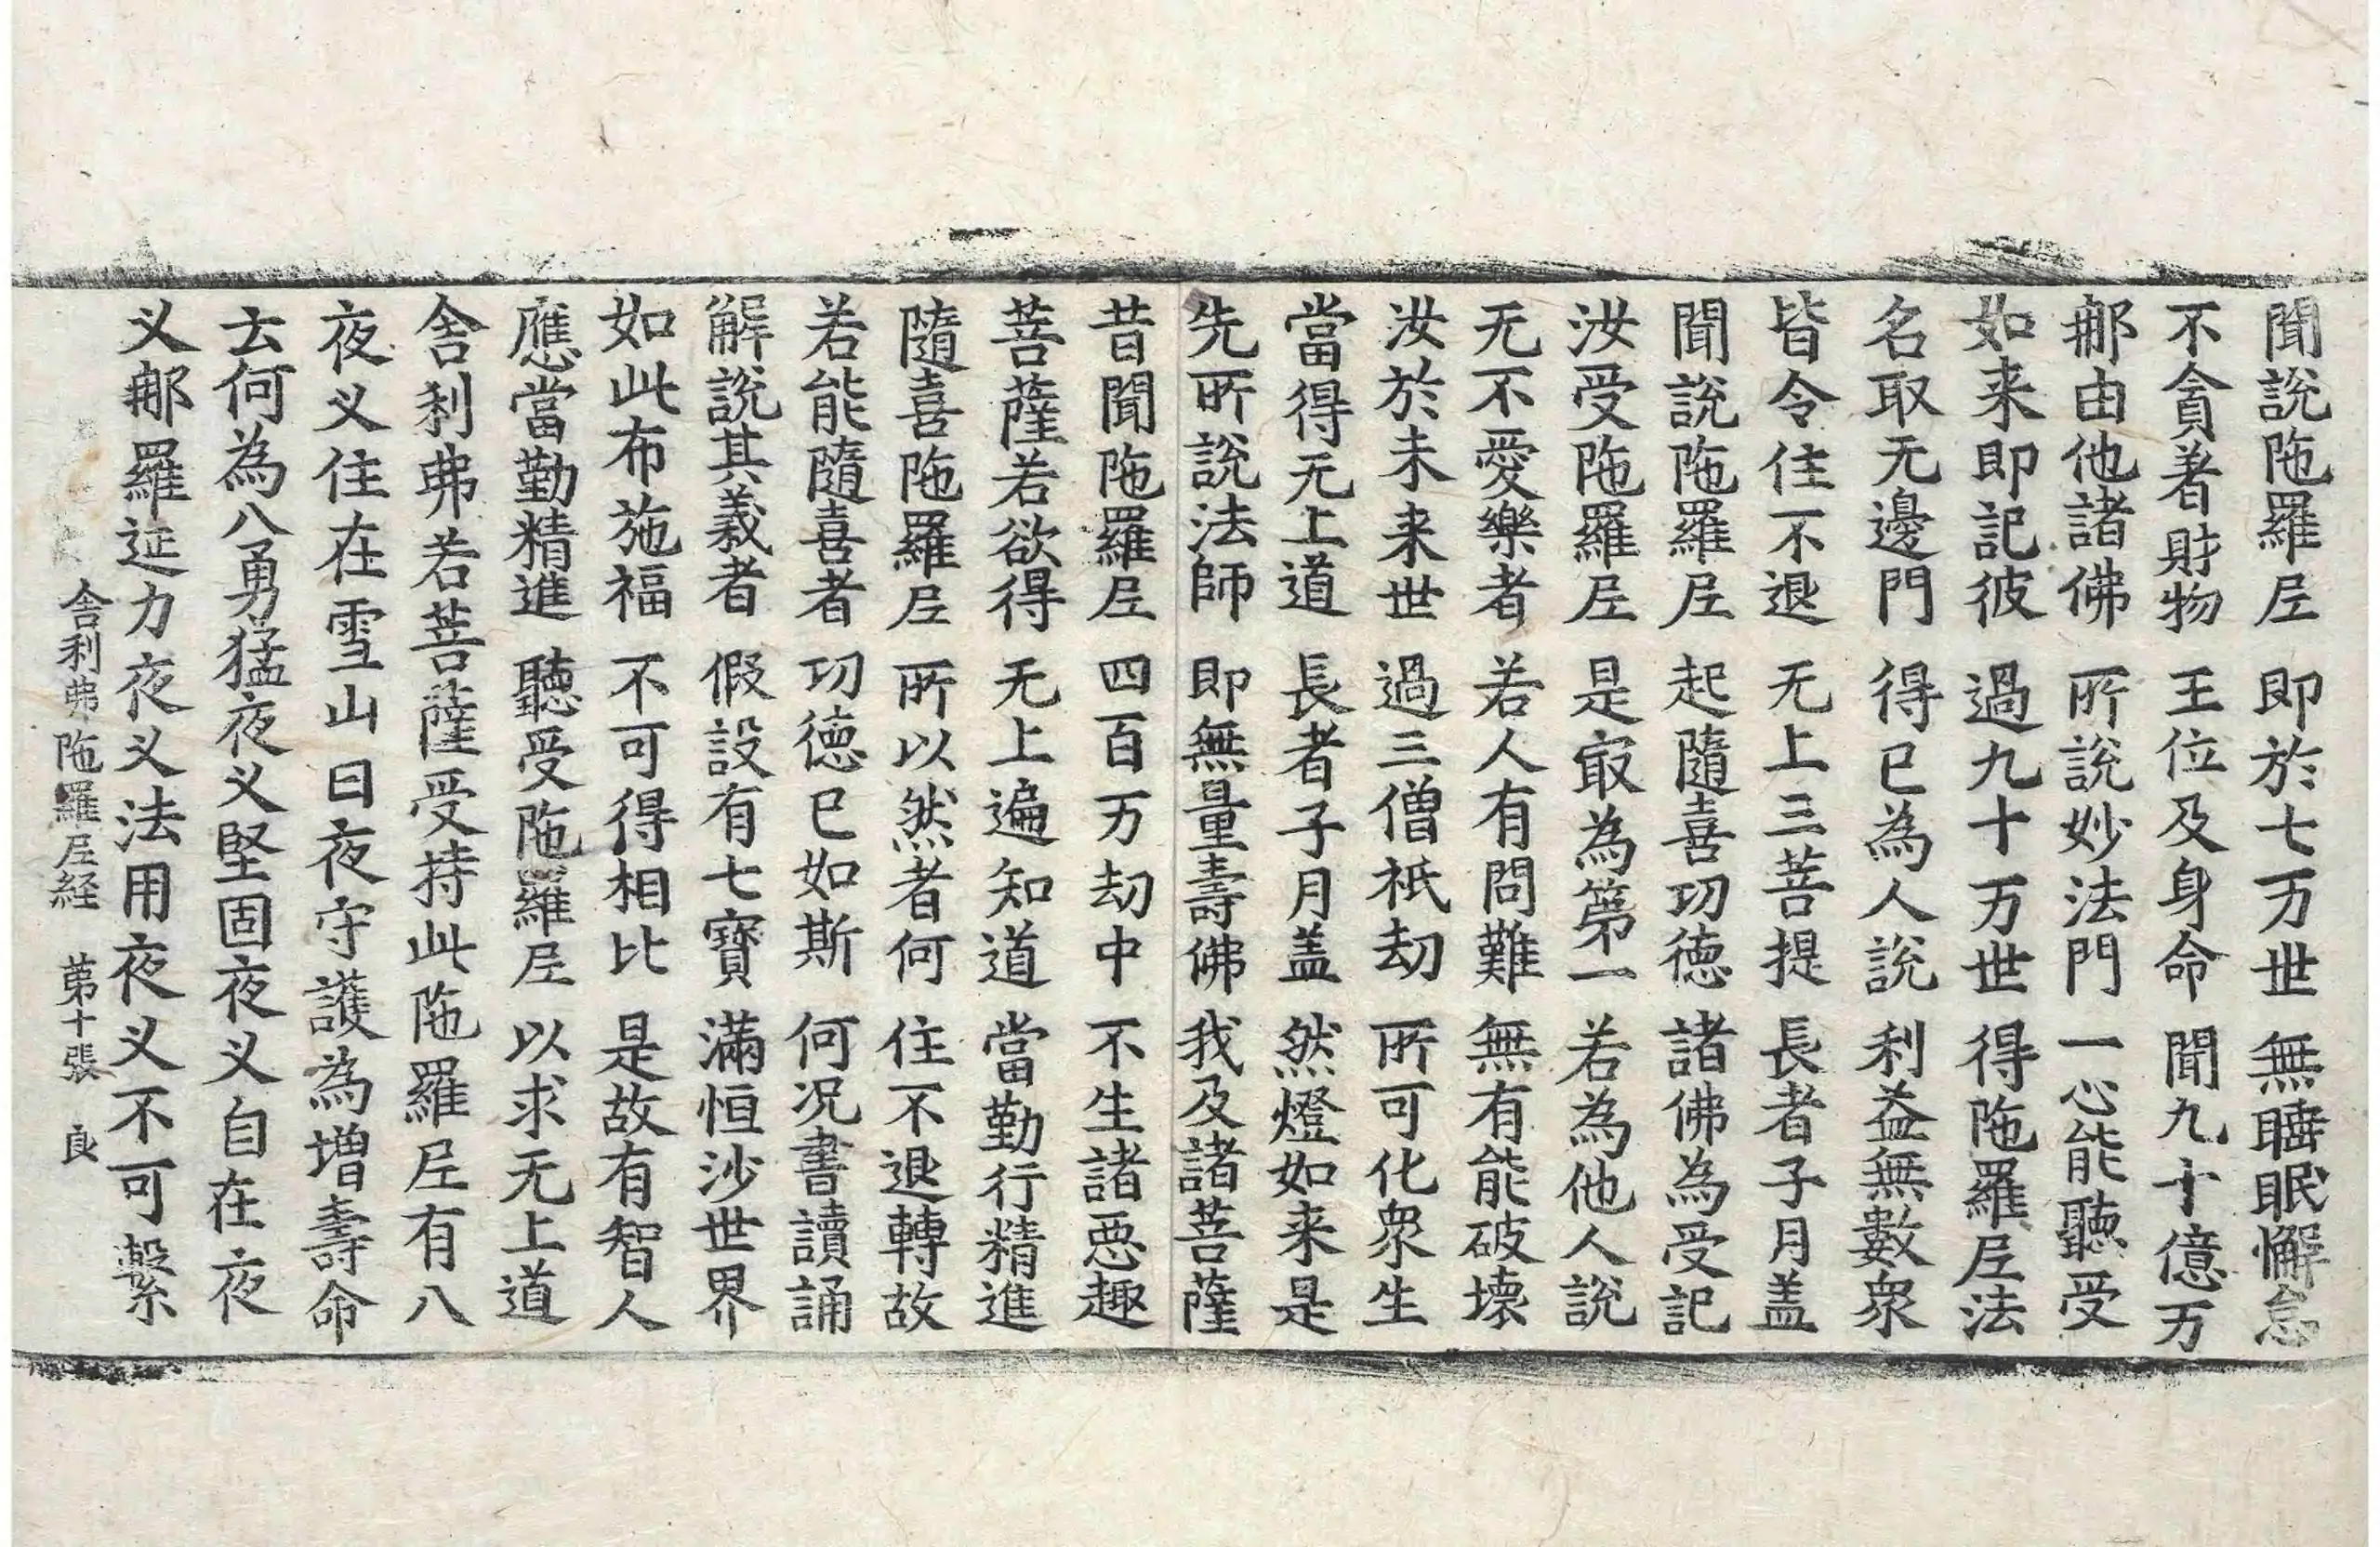 聞說陁羅𡰱　即於七万世　無睡眠懈怠
不貪著財物　王位及身命　聞九十億万
𨚗由他諸佛　所說妙法門　一心能聽受
如来即記彼　過九十万世　得陁羅𡰱法
名取无邊門　得已為人說　利益無數衆
皆令住不退　无上三菩提　長者子月盖
聞說陁羅𡰱　起隨喜切徳　諸佛為受記
汝受陁羅𡰱　是㝡為第一　若為他人說
无不愛樂者　若人有問難　無有能破壞
汝於未来世　過三僧祇劫　所可化衆生
當得无上道　長者子月盖　然燈如来是
先所說法師　即無量壽佛　我及諸菩薩
昔聞陁羅𡰱　四百万劫中　不生諸惡趣
菩薩若欲得　无上遍知道　當勤行精進
隨喜陁羅𡰱　所以然者何　住不退轉故
若能隨喜者　切徳已如斯　何況書讀誦
解說其義者　假設有七寶　滿恒沙世界
如此布施福　不可得相比　是故有智人
應當勤精進　聽受陁羅𡰱　以求无上道
舍利弗若菩薩受持此陁羅𡰱有八
夜义住在雪山日夜守護為增壽命
云何為八勇猛夜义堅固夜义自在夜
义𨚗羅延力夜义法用夜义不可繫
舍利弗陁羅𡰱経　第十張　良